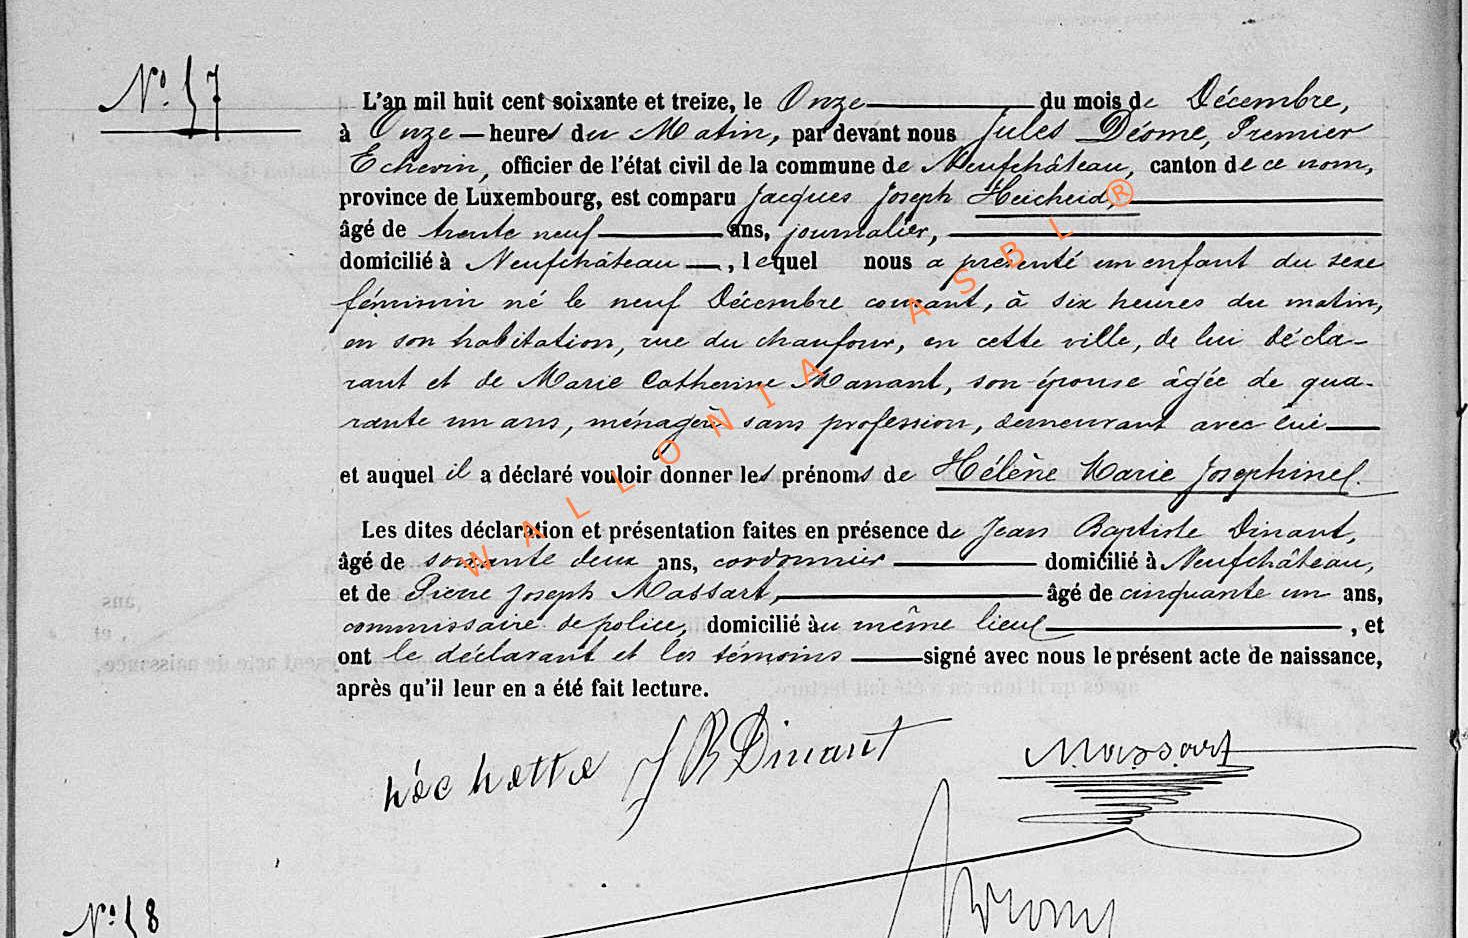 No. 57
L'an mil huit cent soixante et treize, le Onze du mois de Décembre,
à Onze heures du Matin, par devant nous Jules Désome, Premier
Echevin, officier de l'état civil de la commune de Neufchâteau, canton de ce nom,
province de Luxembourg, est comparu Jacques Joseph Heicheid,
âgé de trente neuf ans, journalier,
domicilié à Neufchâteau, lequel nous a présenté un enfant du sexe
féminin né le neuf Décembre courant, à six heures du matin,
en son habitation, rue du chaufour, en cette ville, de lui décla-
rant et de Marie Catherine Manant, son épouse âgée de qua-
rante un ans, ménagère sans profession, demeurant avec lui
et auquel il a déclaré vouloir donner les prénoms de Hélène Marie Josephine.
Les dites déclaration et présentation faites en présence de Jean Baptiste Dinant,
âgé de soixante deux ans, cordonnier domicilié à Neufchâteau,
et de Pierre Joseph Massart, âgé de cinquante un ans,
commissaire de police, domicilié au même lieu, et
ont le déclarant et les témoins signé avec nous le présent acte de naissance,
après qu'il leur en a été fait lecture.
J B Dinant Massart
No. 58
WALLONIA ASBL ®